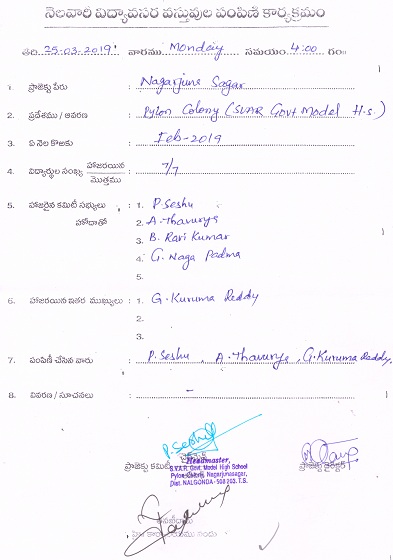 నెలవారీ విద్యావసర వస్తువుల పంపిణీ కార్యక్రమం
తేది 25-03-2019 వారము Monday సమయం 4:00 గం
1. ప్రాజెక్టు పేరు : Nagarjuna Sagar
2. ప్రదేశము / ఆవరణ : Pylon Colony (SVAR Govt Model H.s.)
3. ఏ నెల కొఱకు : Feb-2019
4. విద్యార్థుల సంఖ్య హాజరయిన / మొత్తము : 7/7
5. హాజరైన కమిటీ సభ్యులు : 1. P. Seshu
హోదాతో 2. A. Thavurya
3. B. Ravi Kumar
4. G. Naga Padma
5.
6. హాజరయిన ఇతర ముఖ్యులు : 1. G. Kuruma Reddy
2.
3.
7. పంపిణీ చేసిన వారు : P. Seshu, A. Thavurya, G. Kuruma Reddy.
8. వివరణ / సూచనలు : -
P. Seshu
ప్రాజెక్టు కమిటీ
ప్రాజెక్టు డైరెక్టర్
Headmaster,
S.V.A.R. Govt. Model High School
Pylon Colony, Nagarjunasagar,
Dist. NALGONDA - 508 203. T.S.